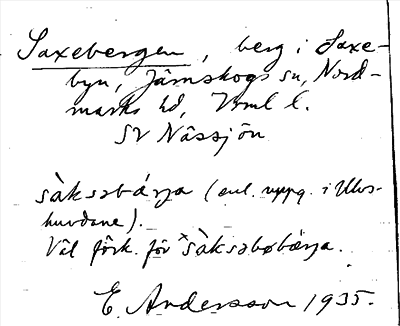 Saxebergen, berg i Saxe-
byn, Järnskogs sn, Nord-
marks hd, Vrml l.
SV Nässjön
sàksəbá̀rja (enl. uppg. i Ulvs-
Väl förk. för *sàksəbøbá̀rja.
E. Andersson 1935.